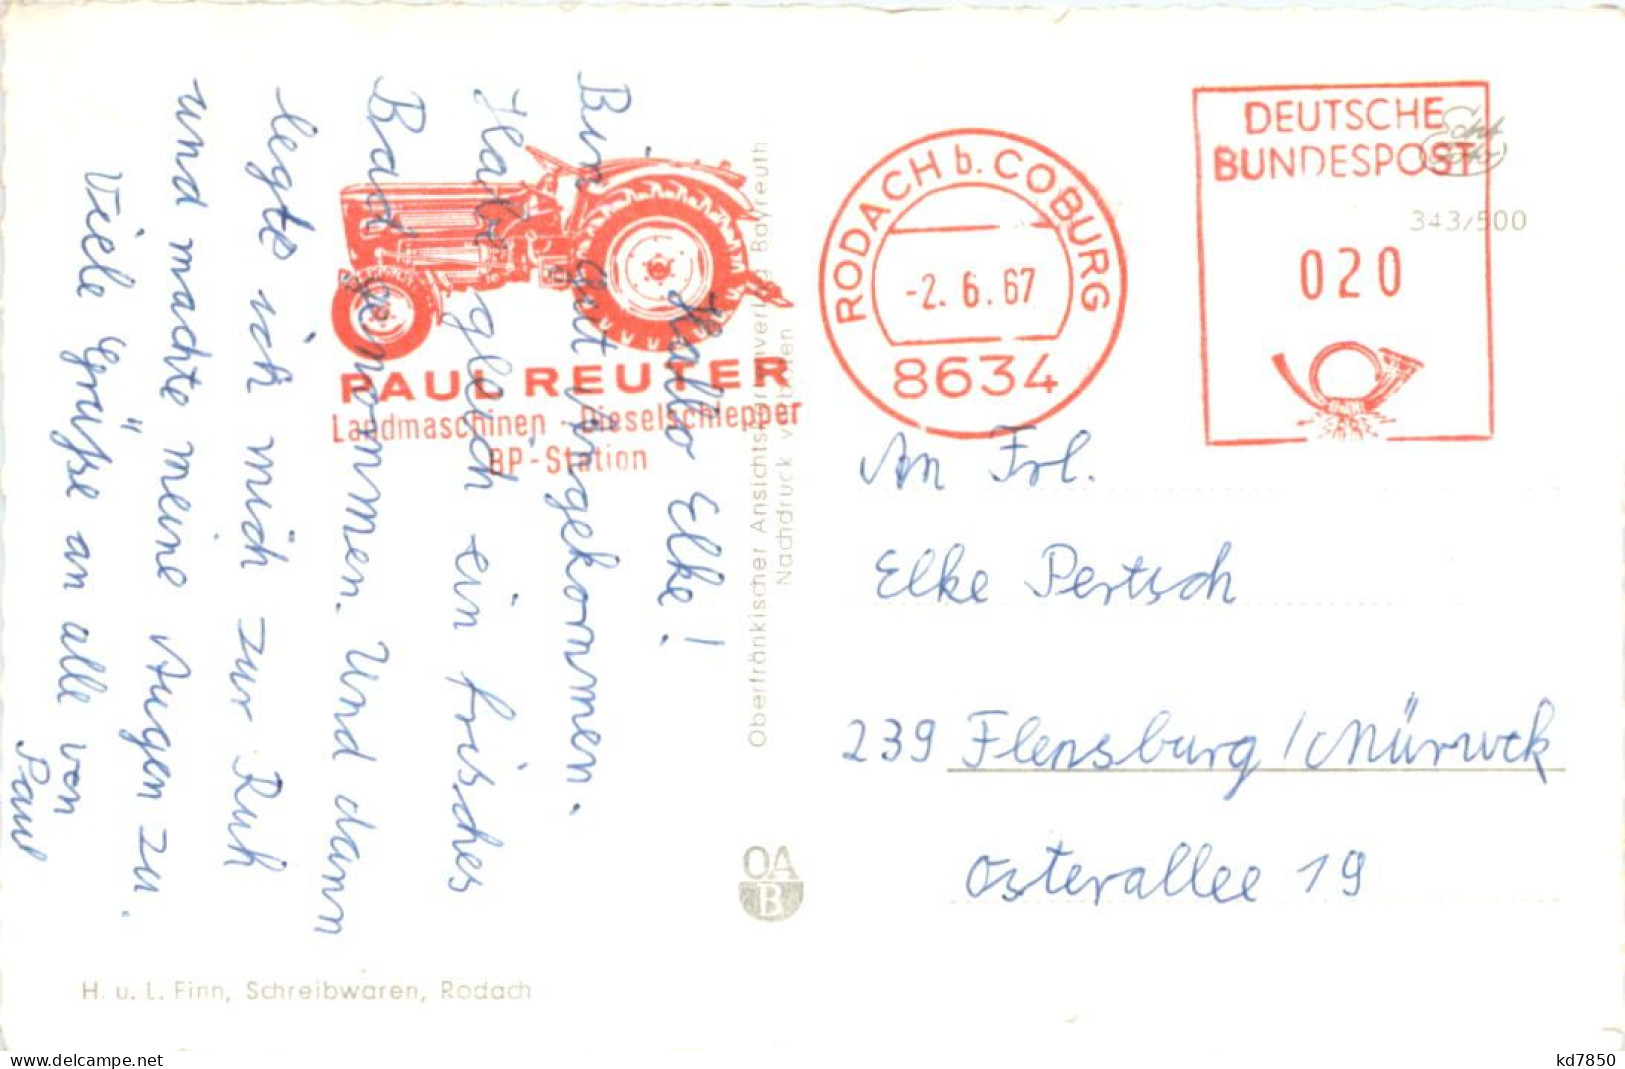 Hallo Elke!
Bin gut angekommen.
Habe gleich ein frisches
Bad genommen. Und dann
legte ich mich zur Ruh
und machte meine Augen zu.
Viele Grüße an alle von
Paul
PAUL REUTER
Landmaschinen - Dieselschlepper
BP-Station
RODACH b. COBURG
-2. 6. 67
8634
DEUTSCHE
BUNDESPOST
020
Echt
Foto
343/500
Oberfränkischer Ansichtskartenverlag Bayreuth
Nachdruck verboten
OA
B
An Frl.
Elke Pertsch
239 Flensburg/Mürwck
Osterallee 19
H. u. L. Finn, Schreibwaren, Rodach
www.delcampe.net
kd7850